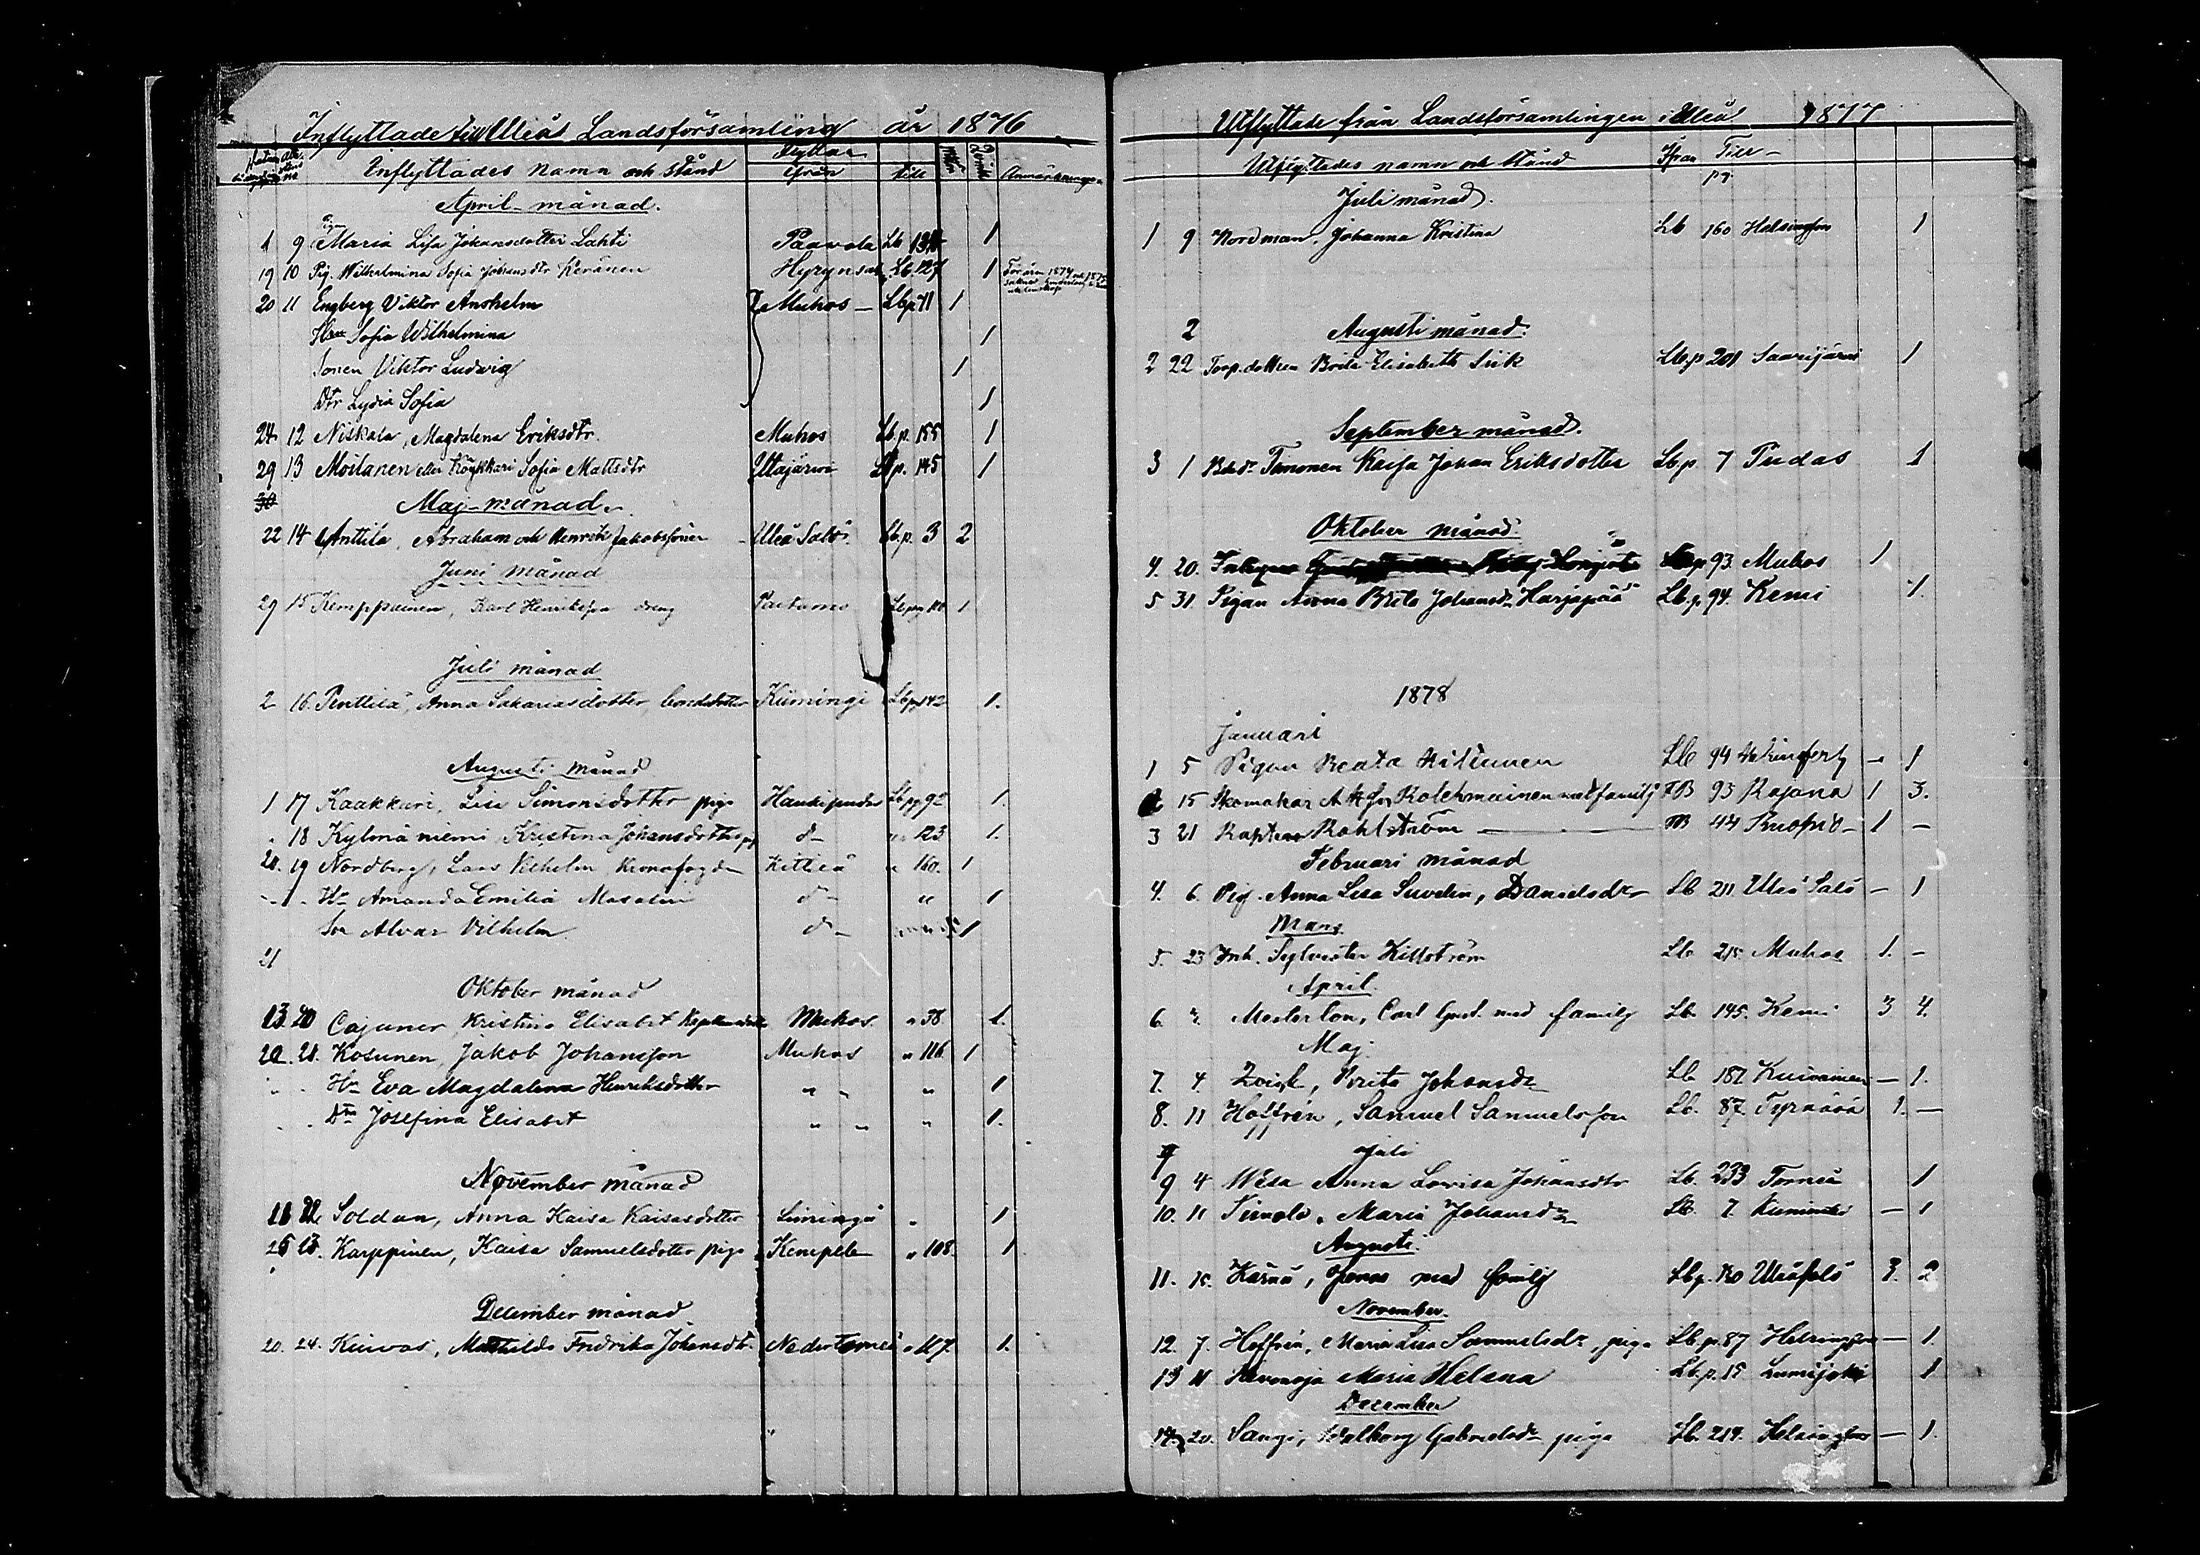 Inflyttade till Uleås Landsförsamling år 1876
Inflyttades namn och stånd Flyttar ifrån till Anmärkningar
April månad.
1 9 Pigan Maria Lisa Johansdotter Lahti Paavola Lb 1
19 10 Pig. Wilhelmina Sofia Johansdtr Keränen Hyrynsal. Lb. 127 1
20 11 Engberg Viktor Anshelm Muhos Lb.p 71 1
Hru Sofia Wilhelmina 1
Sonen Viktor Ludvig 1
Dtr Lydia Sofia 1
24 12 Niskala, Magdalena Eriksdtr. Muhos Lb.p. 155 1
29 13 Moilanen eller Sofia Mattsdtr Utajärvi Lb p. 145 1
30 Maj månad
22 14 Anttila, Abraham och Henrik Jakobssöner Uleå Salo Lb.p. 3 2
Juni månad
29 15 Kemppainen, Karl Henriksson dreng Paltamo 1
Juli månad
2 16. Penttilä, Anna Sakariasdotter, bondedotter Kiimingi Lb pg 142 1.
Augusti månad
1 17 Kaakkuri, Lisa Simonsdotter piga Haukipudas Lb pg 92 1.
" 18 Kylmäniemi Kristina Johansdotter pig d- " 123 1.
20. 19 Nordberg, Lars Vilhelm, Kronofogde Kittilä " 160. 1
Hu Amanda Emilia Masalin d- " 1
Son Alvar Vilhelm d- 1
21
Oktober månad
13 20 Cajaner, Kristina Elisabet Muhos " 38 1.
20. 21. Kosunen, Jakob Johansson Muhos " 116 1
Hu Eva Magdalena Henriksdotter " " " 1
Dtr Josefina Elisabet " " " 1.
November månad
18 22 Soldan, Anna Kaisa Kaisasdotter Limingo " 1
25 23. Karppinen, Kaisa Samuelsdotter piga Kempele " 108. 1
December månad
20. 24. Kuivas, Mathilda Fredrika Johansdtr. Nedertorneå " 117. 1.
Utflyttade från Landsförsamlingen i Uleå 1877
Utflyttades namn och stånd Ifrån pg. Till
Juli månad.
1 9 Nordman, Johanna Kristina Lb 160 Helsingfors 1
2 Augusti månad.
2 22 Torp.dottren Brita Elisabeth Lb.p 201 Saarijärvi 1
September månad.
3 1 Timonen Kaisa Johan Eriksdotter Lb.p. 7 Pudas 1
Oktober månad.
4. 20. p 93 Muhos 1
5 31. Pigan Anna Brita Johansdr Harjapää Lb.p. 94. Kemi 1.
1878
Januari
1 5 Pigan Beata Kiltinnen Lb 94 - 1
2 15 Skomakar Kolehmainen med familj TB 93 Kajana 1 3.
3 21 Kapten Kohlström TB 44 Kuopio 1 -
Februari månad
4. 6. Pig. Anna Lisa Suvelin, Danielsdtr Lb 211 Uleå Salo - 1
Mars
5. 23 Inh. Sylvester Killström Lb 215 Muhos 1. -
April.
6. Carl Gust. med familj Lb 145. Kemi 3 4.
Maj
7. 4 Brita Johansdr Lb 187 Kuivaniemi - 1.
8. 11 Hoffrén, Samuel Samuelsson Lb. 87. Tyrnävä 1. -
Juli
9 4 Wesa Anna Lovisa Johansdtr Lb. 233 Torneå 1
10. 11 Maria Johansdr Lb. 7. Kiiminki - 1
Augusti.
11. 15. Karnu, Jonas med familj Lb p. Uleåsalo 3. 2
November.
12. 7. Hoffrén, Maria Lisa Samuelsdr, piga Lb.p. 87 Helsingfors - 1.
13 11 Maria Helena Lb.p. 15 Lumijoki 1
December
14. 20. Sangi, Walborg Gabrielsdr piga Lb. 217. Helsingfors - 1.